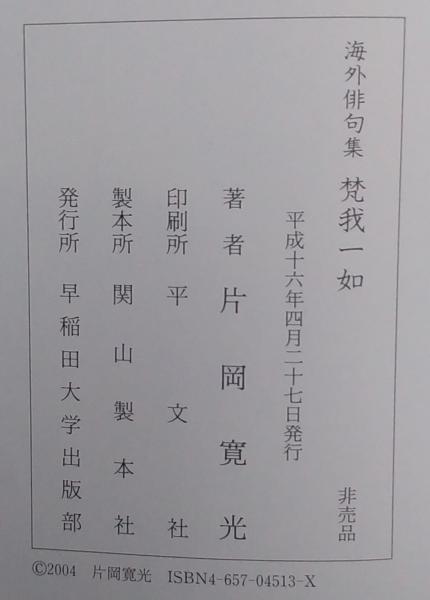 海外俳句集 梵我一如
非売品
平成十六年四月二十七日発行
著者 片岡寛光
印刷所 平文社
製本所 関山製本社
発行所 早稲田大学出版部
©2004 片岡寛光 ISBN4-657-04513-X